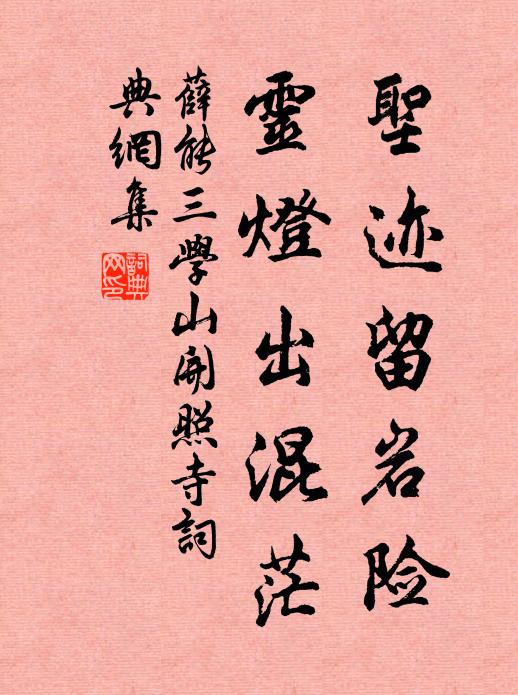 聖迹留岩险
靈燈出混茫
薛能三學山開照寺詞
典網集
詞典网印